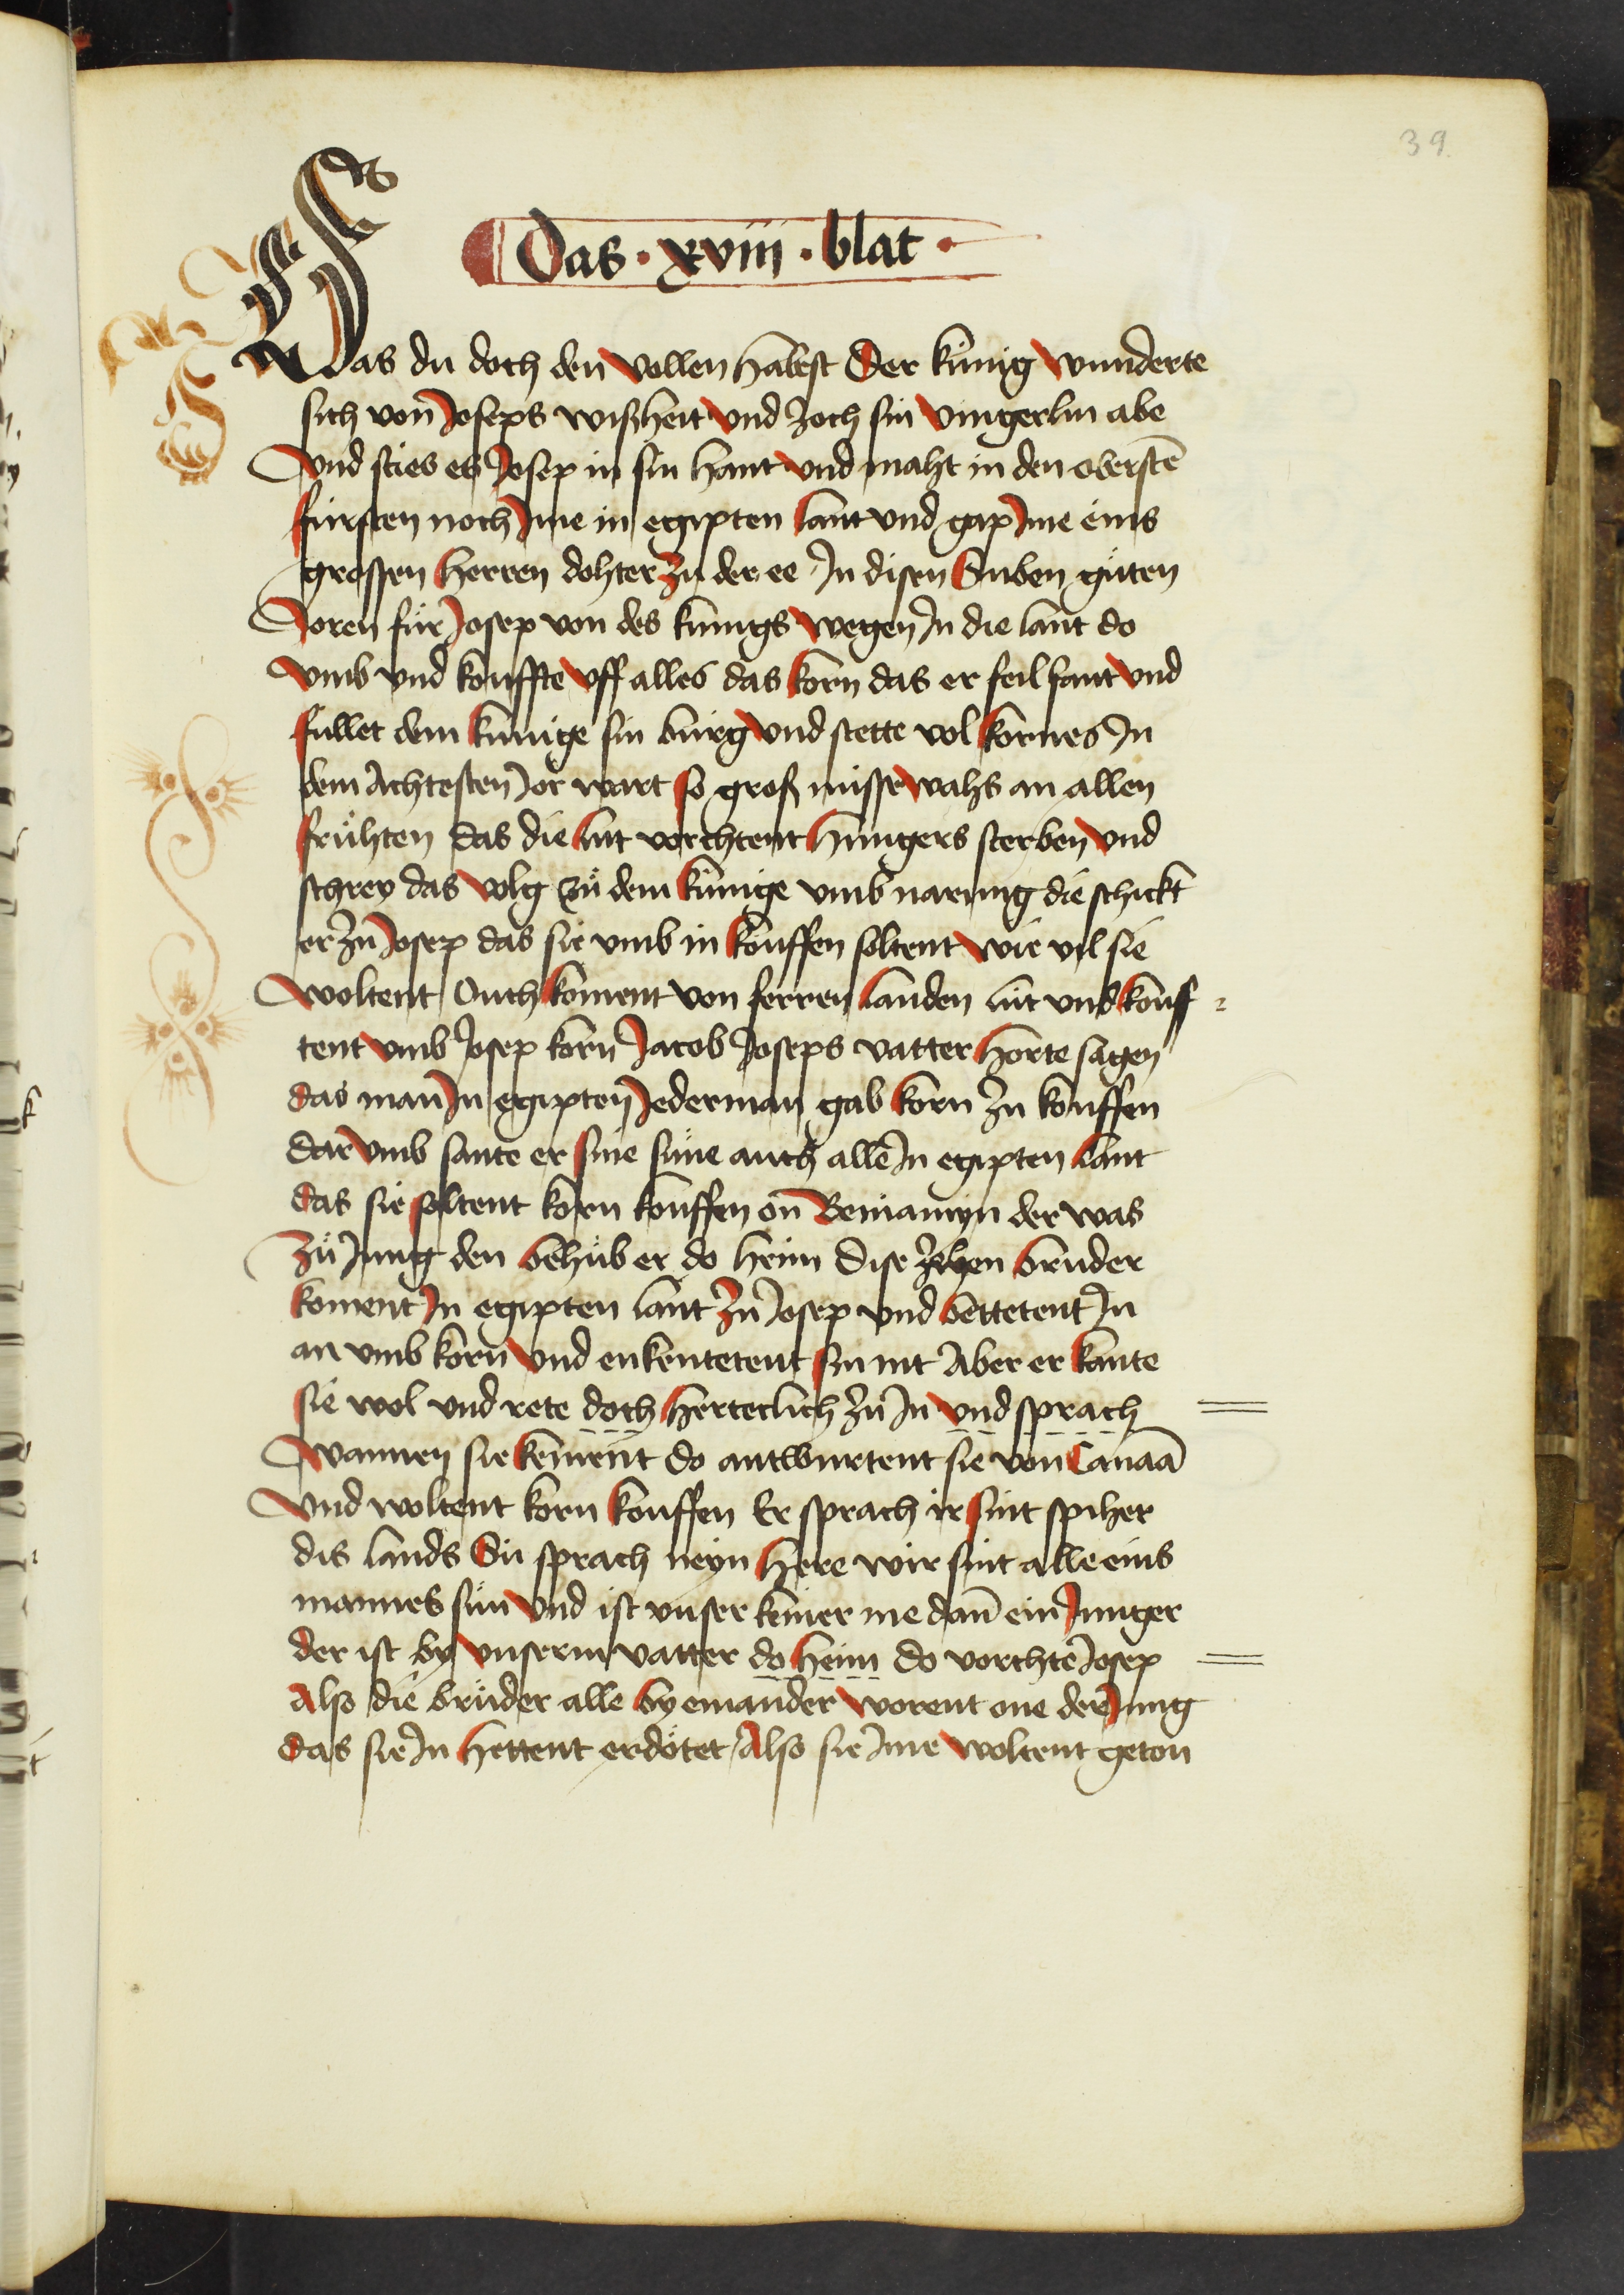 39
Das · xviii · blat ·
Das du doch den vollen habest Der kúnig wunderte
sich von Joseps wißheit vnd zoch sin vingerlin abe
vnd sties es Josep in sin hant vnd maht in den oberstē
fúrsten noch Jme in egipten lant vnd gap Jme eins
grossen herren dohter zů der ee Jn disen Suben gůten
Joren fůr Josep von des kúnigs wegen Jn die lant do
vmb vnd kouffte vff alles das korn das er feil fant vnd
fullet dem kúnige sin búrg vnd stette vol kornes Jn
dem Achtesten Jor wart so groß missewahs an allen
frúhten das die lút vorchtent hungers sterben vnd
schrey das volg zů dem kúnige vmb narung die schickt
er zů Josep das sie vmb in kouffen soltent wie vil sie
woltent Ouch koment von ferren landen lút vnd kouff=
tent vmb Josep korn Jacob Joseps vatter horte sagen
das man Jn egipten Jederman gab korn zu kouffen
dar vmb sante er sine súne auch alle Jn egipten lant
das sie soltent korn kouffen on Beniamyn der was
zů Jung den behůb er do heim Dise zehen brůder
koment Jn egipten lant zů Josep vnd bettetent Jn
an vmb korn vnd enkentetent sin nit Aber er kante
sie wol vnd rete doch herteclich zů Jn vnd sprach
wannen sie kement do antwurtent sie von Canaā
vnd woltent korn kouffen Er sprach ir sint spiher
dis lands Sú sprach neyn here wir sint alle eins
mannes sún vnd ist vnser keiner me dan ein Junger
der ist by vnserm vatter do heim do vorchte Josep
Also die brůder alle by einander worent one der Jung
das sie Jn hettent erdötet Also sie Jme woltent geton